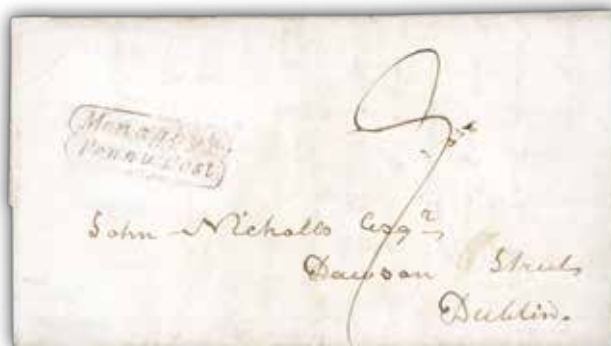 Penny Post
John Nicholls Esqr
Dawson Street
Dublin.